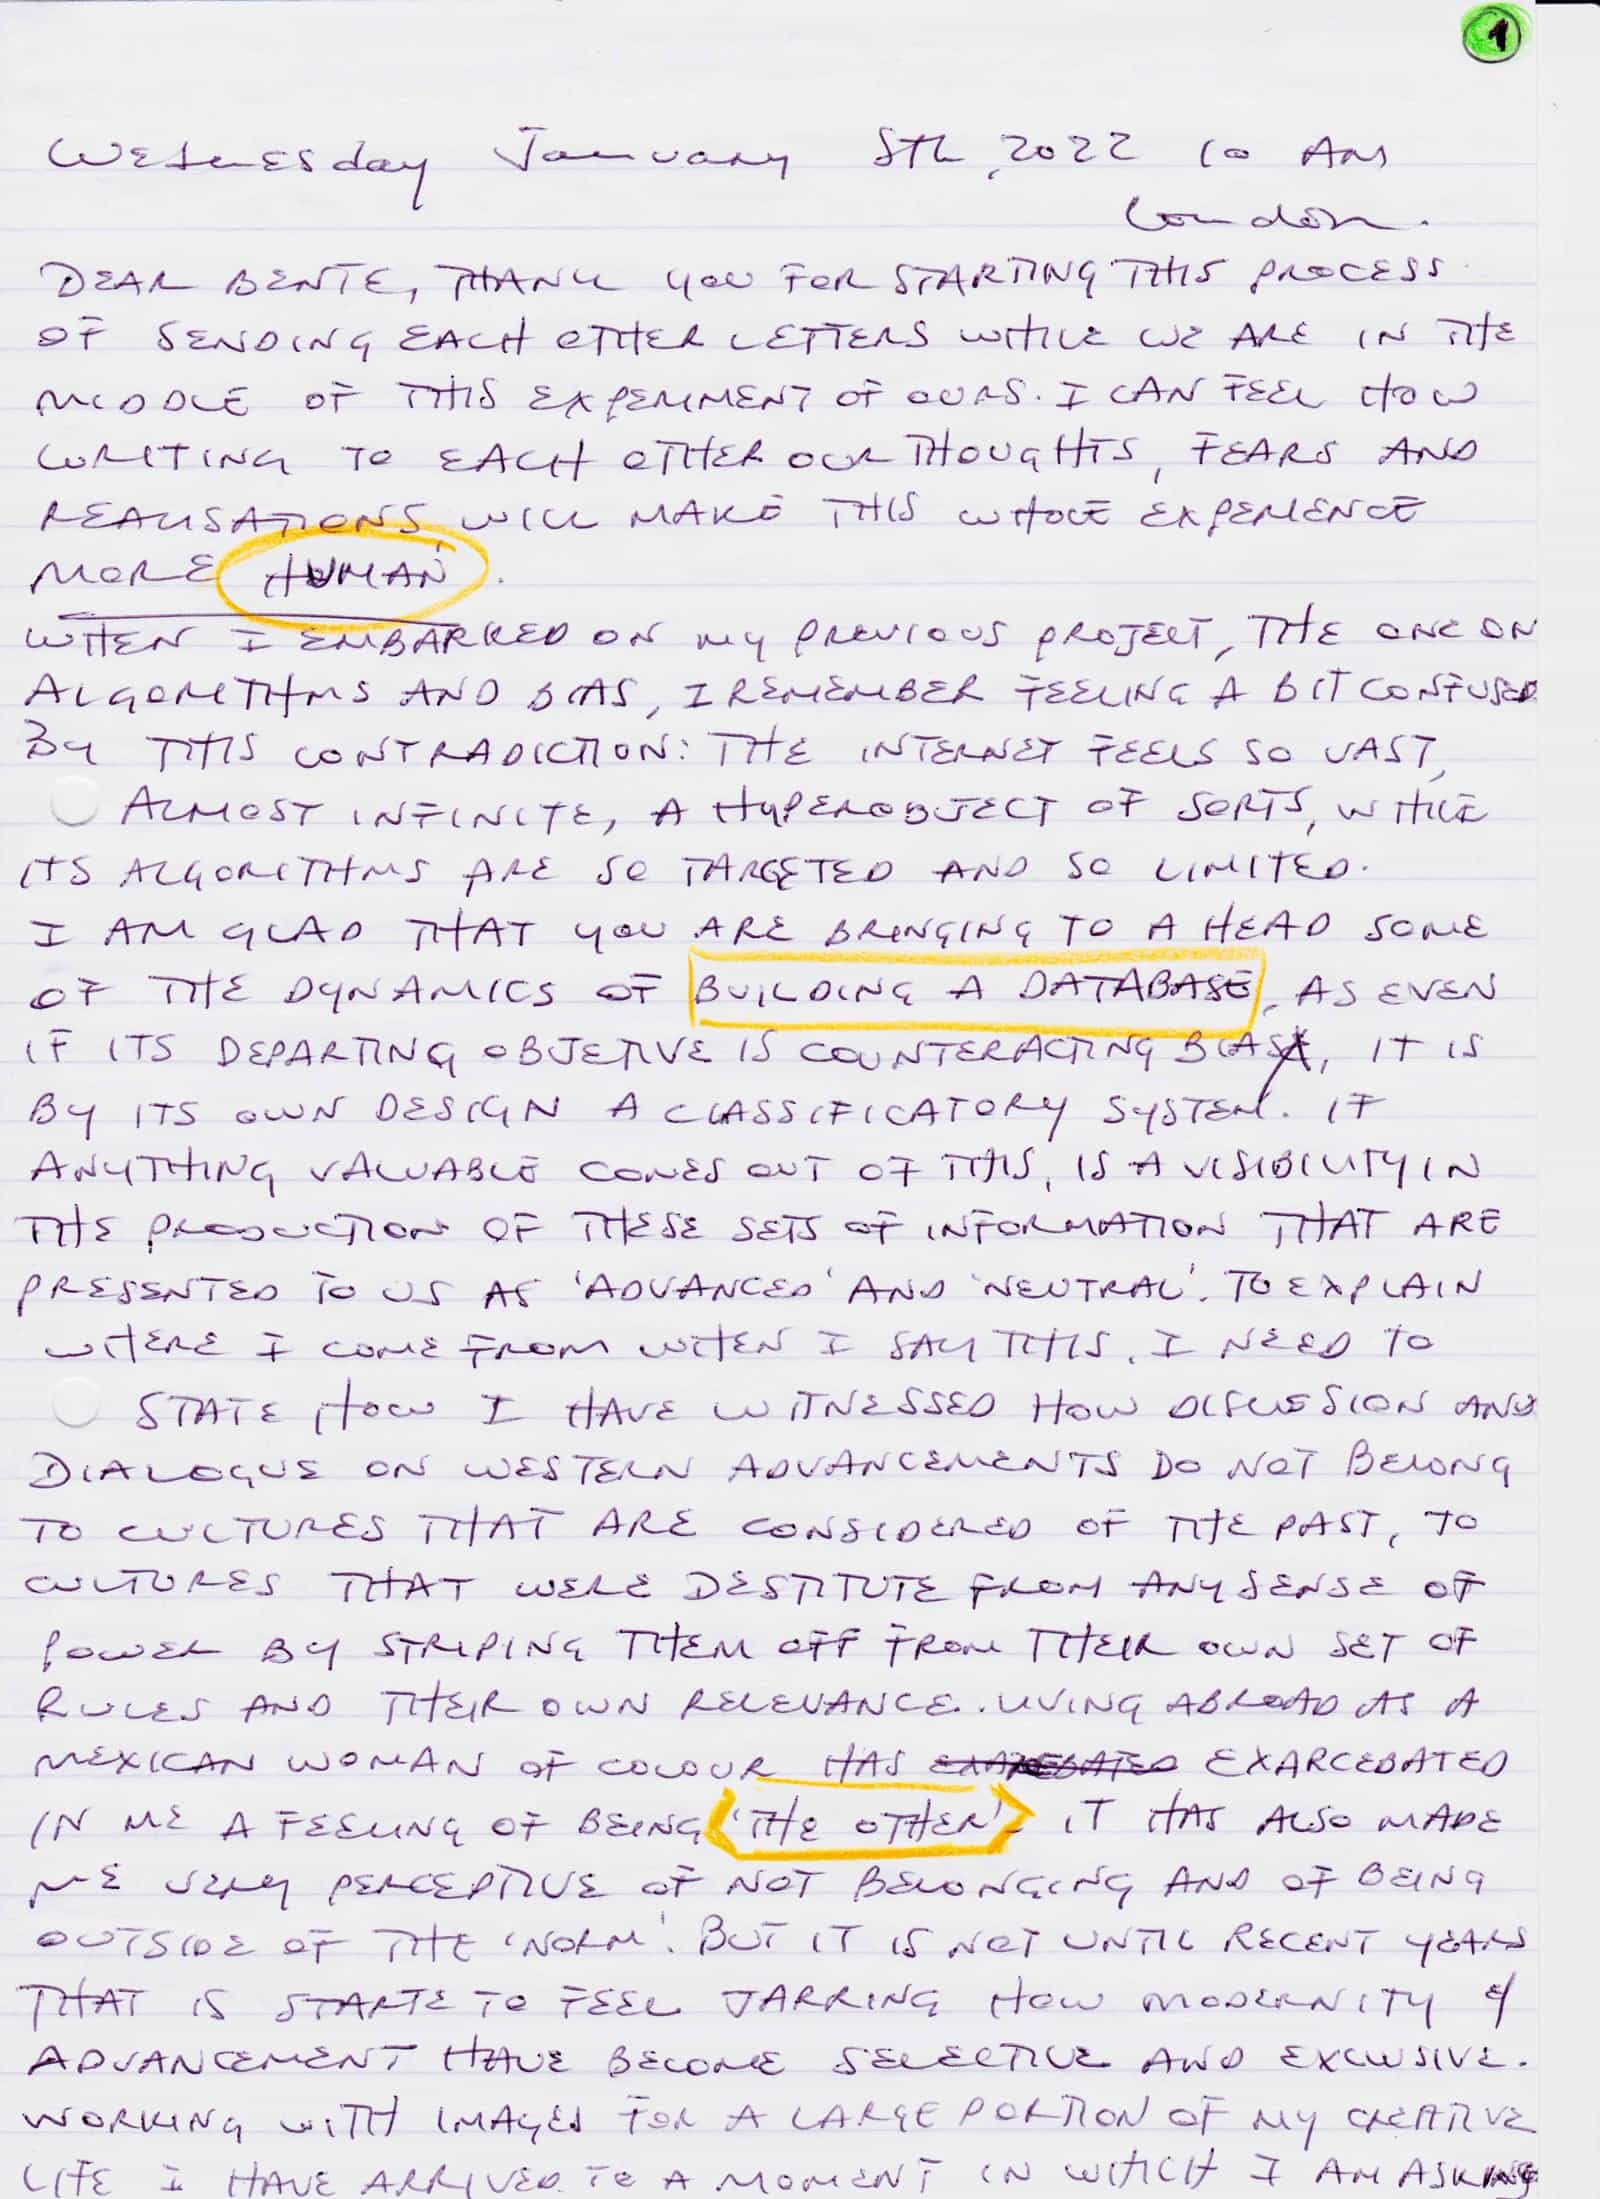 1
Wednesday January 5th, 2022 10 AM
London.
DEAR BENTE, THANK YOU FOR STARTING THIS PROCESS
OF SENDING EACH OTHER LETTERS WHILE WE ARE IN THE
MIDDLE OF THIS EXPERIMENT OF OURS. I CAN FEEL HOW
WRITING TO EACH OTHER OUR THOUGHTS, FEARS AND
REALISATIONS, WILL MAKE THIS WHOLE EXPERIENCE
MORE HUMAN.
WHEN I EMBARKED ON MY PREVIOUS PROJECT, THE ONE ON
ALGORITHMS AND BIAS, I REMEMBER FEELING A BIT CONFUSED
BY THIS CONTRADICTION: THE INTERNET FEELS SO VAST,
ALMOST INFINITE, A HYPEROBJECT OF SORTS, WHILE
ITS ALGORITHMS ARE SO TARGETED AND SO LIMITED.
I AM GLAD THAT YOU ARE BRINGING TO A HEAD SOME
OF THE DYNAMICS OF BUILDING A DATABASE, AS EVEN
IF ITS DEPARTING OBJETIVE IS COUNTERACTING BIAS, IT IS
BY ITS OWN DESIGN A CLASSIFICATORY SYSTEM. IF
ANYTHING VALUABLE COMES OUT OF THIS, IS A VISIBILITY IN
THE PRODUCTION OF THESE SETS OF INFORMATION THAT ARE
PRESENTED TO US AS 'ADVANCED' AND 'NEUTRAL'. TO EXPLAIN
WHERE I COME FROM WHEN I SAY THIS, I NEED TO
STATE HOW I HAVE WITNESSED HOW DISCUSSION AND
DIALOGUE ON WESTERN ADVANCEMENTS DO NOT BELONG
TO CULTURES THAT ARE CONSIDERED OF THE PAST, TO
CULTURES THAT WERE DESTITUTE FROM ANY SENSE OF
POWER BY STRIPING THEM OFF FROM THEIR OWN SET OF
RULES AND THEIR OWN RELEVANCE.. LIVING ABROAD AS A
MEXICAN WOMAN OF COLOUR HAS EXARCEBATED
IN ME A FEELING OF BEING 'THE OTHER'. IT HAS ALSO MADE
ME VERY PERCEPTIVE OF NOT BELONGING AND OF BEING
OUTSIDE OF THE 'NORM'. BUT IT IS NOT UNTIL RECENT YEARS
THAT IS STARTE TO FEEL JARRING HOW MODERNITY &
ADVANCEMENT HAVE BECOME SELECTIVE AND EXCLUSIVE.
WORKING WITH IMAGES FOR A LARGE PORTION OF MY CREATIVE
LIFE I HAVE ARRIVED TO A MOMENT IN WHICH I AM ASKING